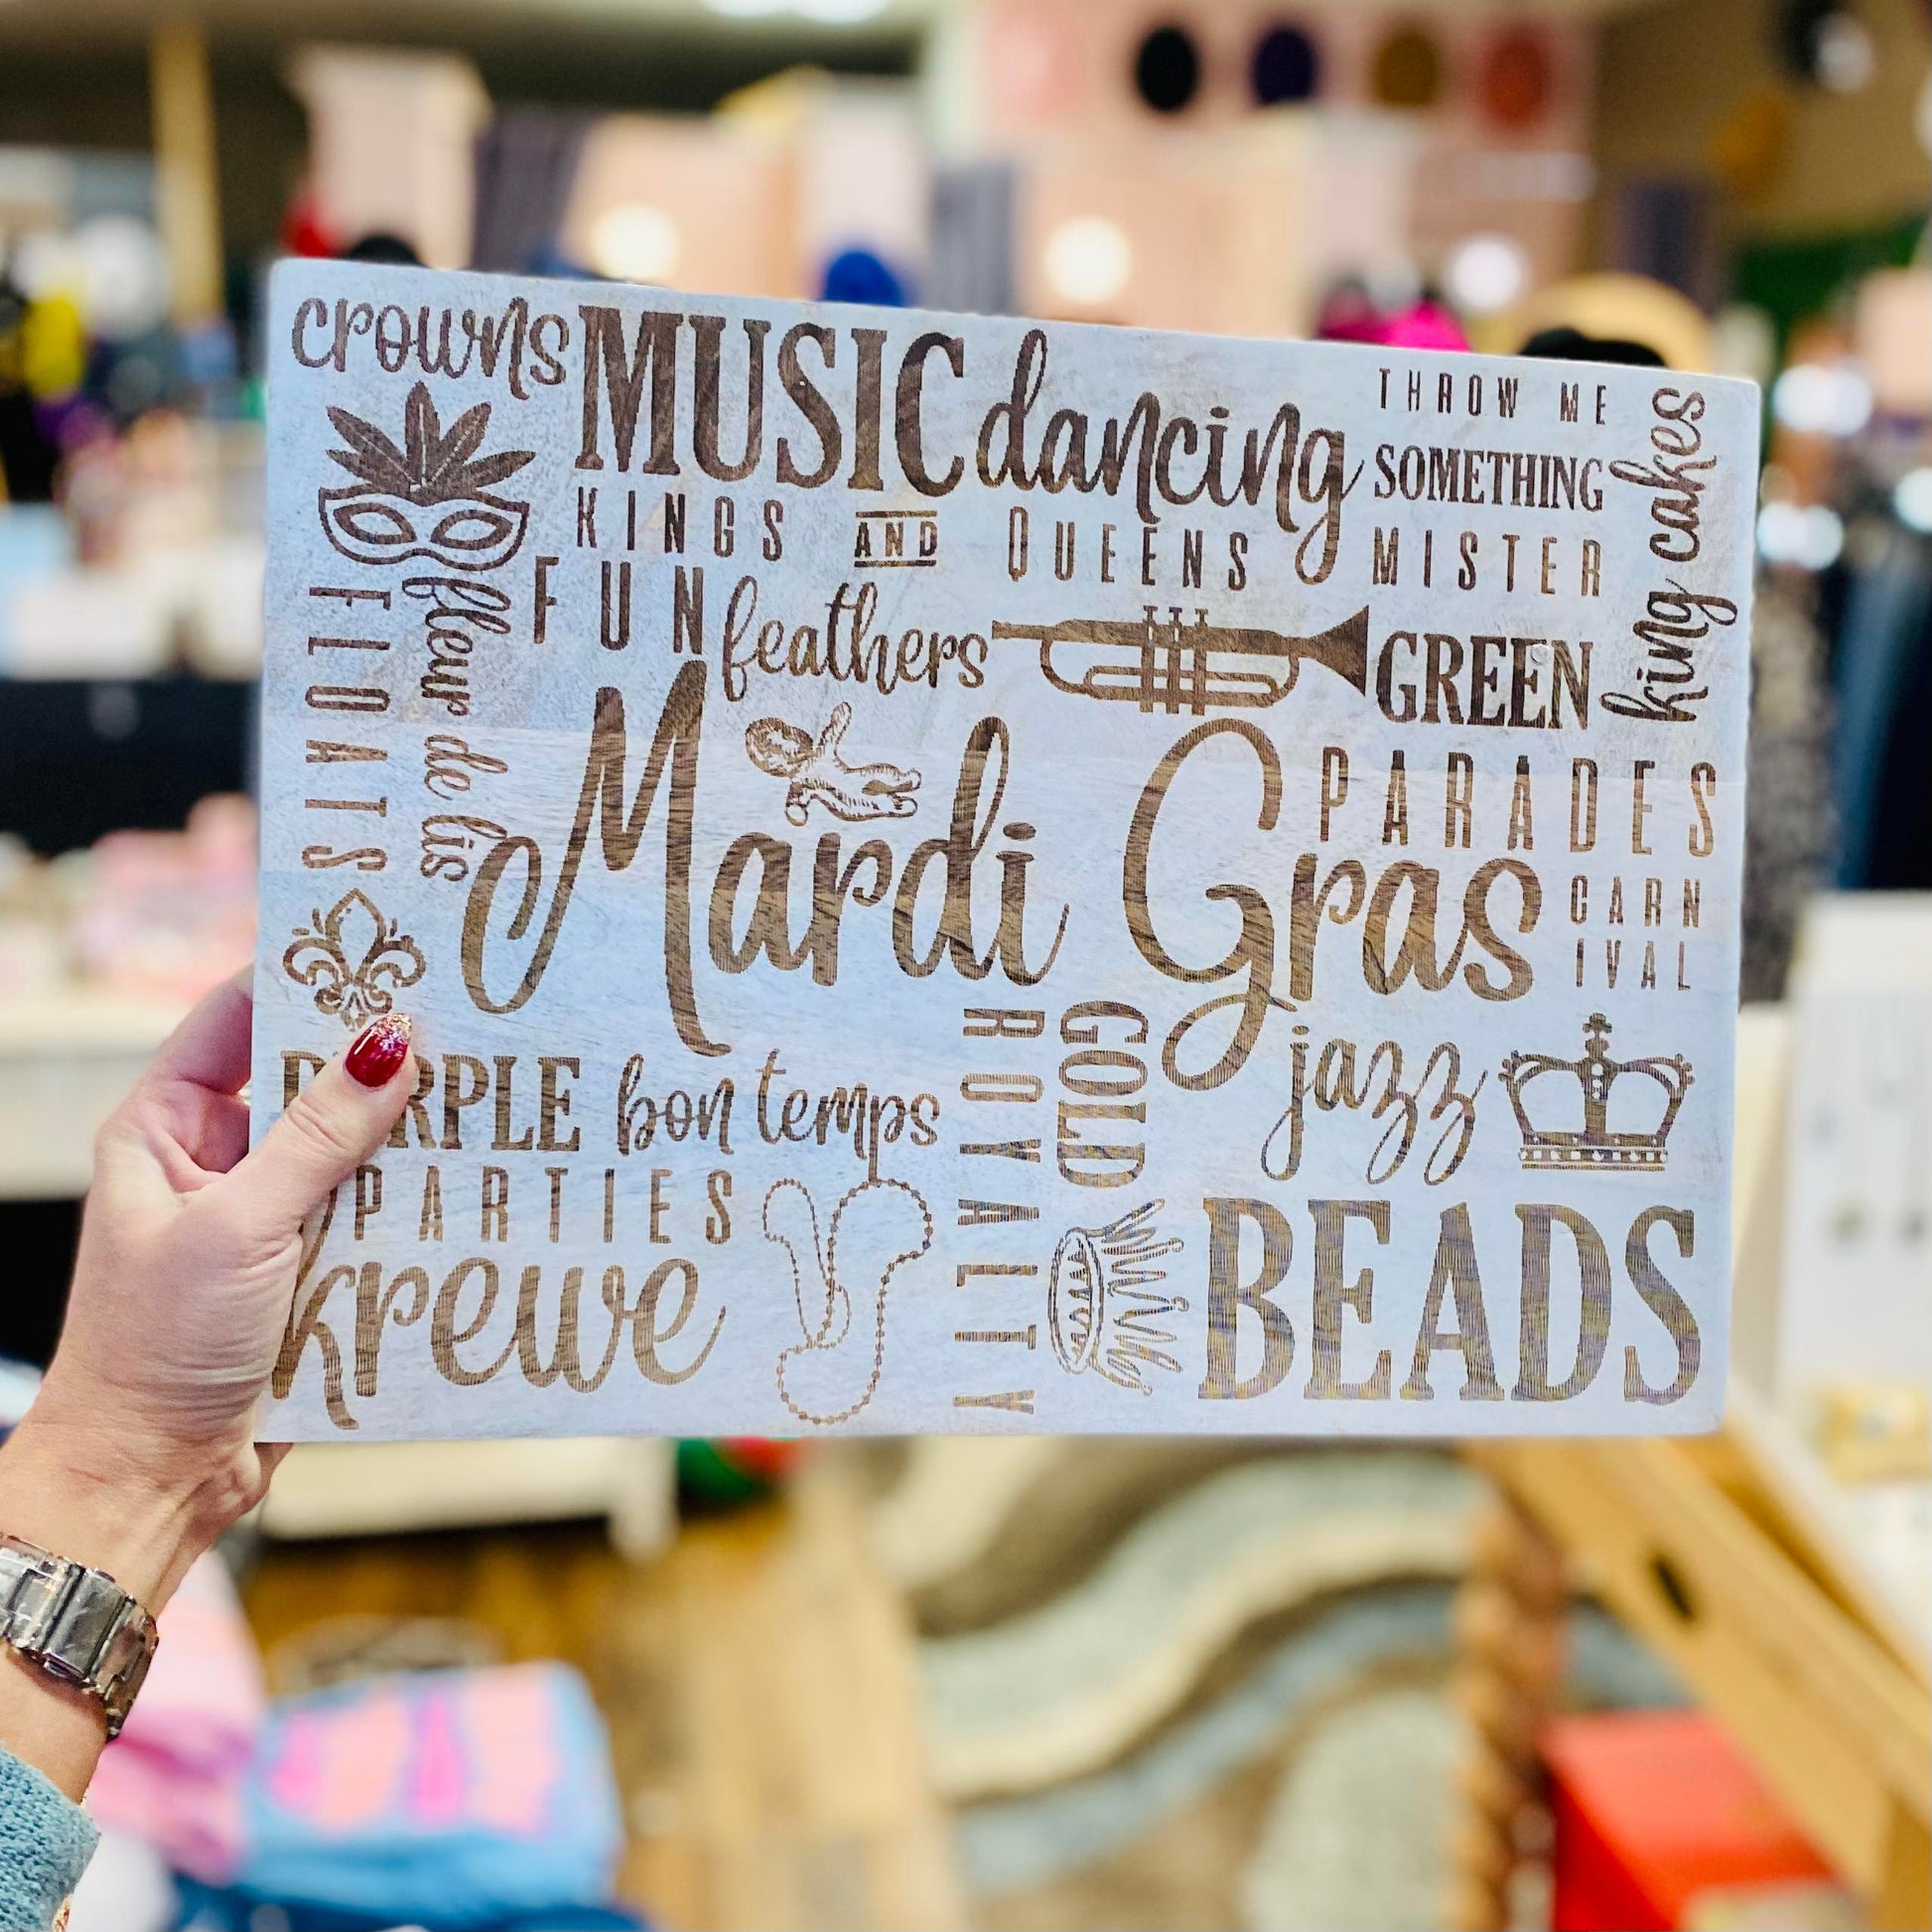 crowns
MUSIC
dancing
THROW ME
SOMETHING
MISTER
king cakes
KINGS AND QUEENS
FLOATS
fleur de lis
FUN
feathers
GREEN
Mardi Gras
PARADES
CARN
IVAL
PURPLE
bon temps
ROYALTY
GOLD
jazz
PARTIES
krewe
BEADS